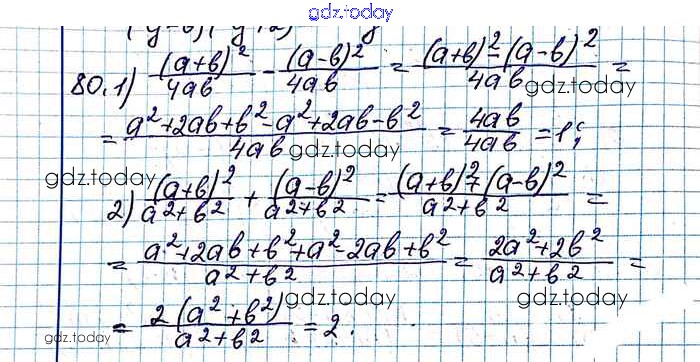 gdz.today
80.1) (a+b)²/4ab - (a-b)²/4ab = (a+b)²-(a-b)²/4ab =
gdz.today
= a²+2ab+b²-a²+2ab-b²/4ab = 4ab/4ab = 1;
gdz.today
gdz.today
2) (a+b)²/a²+b² + (a-b)²/a²+b² = (a+b)²+(a-b)²/a²+b² =
= a²+2ab+b²+a²-2ab+b²/a²+b² = 2a²+2b²/a²+b² =
gdz.today gdz.today
= 2(a²+b²)/a²+b² = 2.
gdz.today